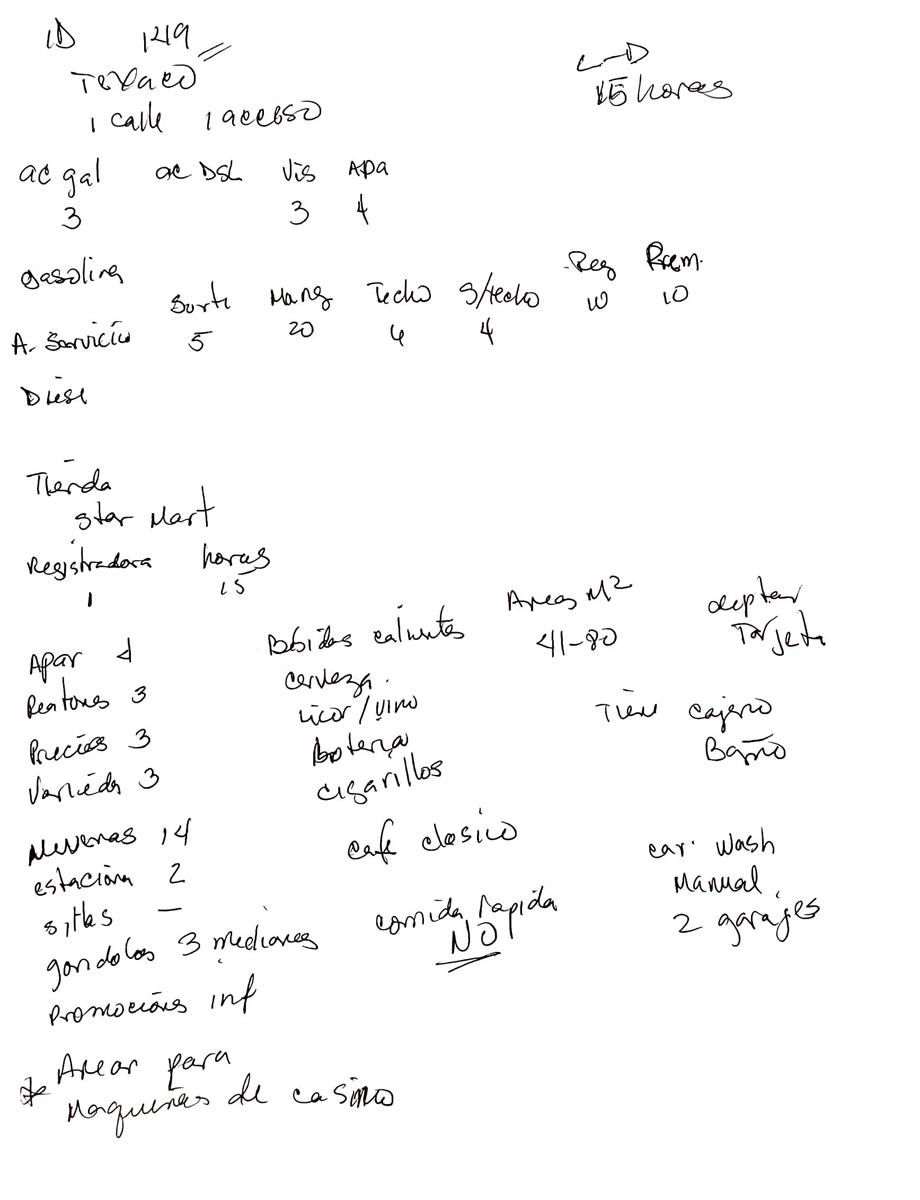 ID 1219
Texaco
1 calle 1 acceso
L-D
15 horas
ac gal ac DSL Vis Apa
3 3 4
gasolina
Surti Mang Techo S/techo Reg Prem.
A. Servicio 5 20 6 4 10 10
Diesl
Tienda
Star Mart
Registradora horas
1 15
Apar 4
Peatones 3
Precios 3
Varieda 3
Neveras 14
estaciona 2
sillas —
gondolas 3 medianas
Promocions inf
Bebidas calientes
cerveza.
Licor/vino
Boteria
cigarillos
cafe clasico
comida rapida
NO
Areas M2
41-80
aceptan
Tarjeta
Tiene cajero
Baño
car wash
Manual
2 garajes
* Arear para
Maquinas de casino